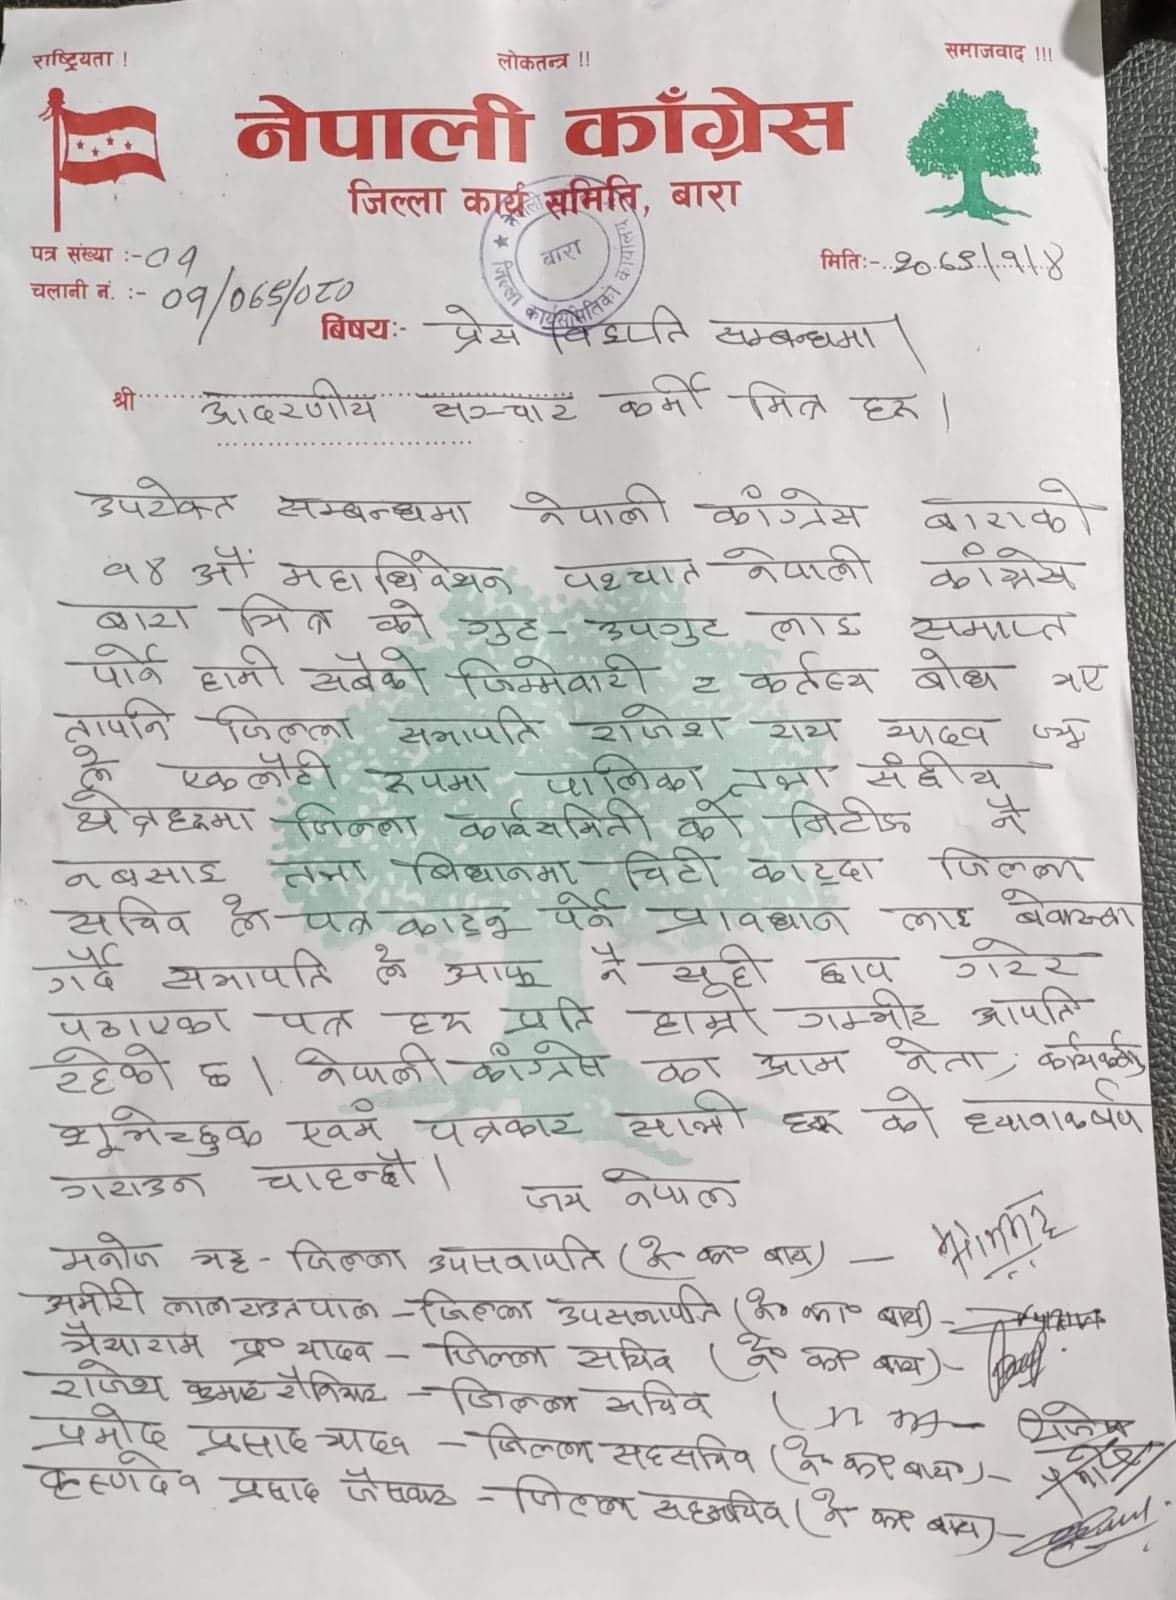 राष्ट्रियता ! लोकतन्त्र !! समाजवाद !!!
नेपाली काँग्रेस
जिल्ला कार्य समिति, बारा
पत्र संख्या :- ०१ मितिः-
चलानी नं. :-
बिषयः- प्रेस विज्ञप्ति सम्बन्धमा।
श्री आदरणीय सञ्चार कर्मी मित्र हरू।
उपरोक्त सम्बन्धमा नेपाली काँग्रेस बाराको
१४ औं महाधिवेशन पश्चात नेपाली काँग्रेस
बारा भित्र को गुट-उपगुट लाइ समाप्त
पार्ने हामी सबैको जिम्मेवारी र कर्तव्य बोध भए
तापनि जिल्ला सभापति राजेश राय यादव ज्यू
ले एकलौटी रूपमा पालिका तथा संघीय
क्षेत्रहरूमा जिल्ला कार्यसमिती को मिटीङ नै
नबसाइ तथा बिधानमा चिटी काट्दा जिल्ला
सचिव ले पत्र काट्नु पर्ने प्रावधान लाइ बेवास्ता
गर्दै सभापति ले आफू नै सही छाप गरेर
पठाएका पत्र हरू प्रति हाम्रो गम्भीर आपति
रहेको छ। नेपाली काँग्रेस का आम नेता, कार्यकर्ता,
शुभेच्छुक एवमं पत्रकार साथी हरू को ध्यानाकर्षण
गराउन चाहन्छौ।
जय नेपाल
मनोज भट्ट - जिल्ला उपसभापति (ने॰ का॰ बारा) -
अमीरी लाल राउत पाल - जिल्ला उपसभापति (ने॰ का॰ बारा) -
भैयाराम प्र॰ यादव - जिल्ला सचिव (ने॰ का॰ बारा) -
राजेश कुमार रौनियार - जिल्ला सचिव
प्रमोद प्रसाद यादव - जिल्ला सहसचिव (ने॰ का॰ बारा) -
कृष्णदेव प्रसाद जैसवाल - जिल्ला सहसचिव (ने॰ का॰ बारा) -